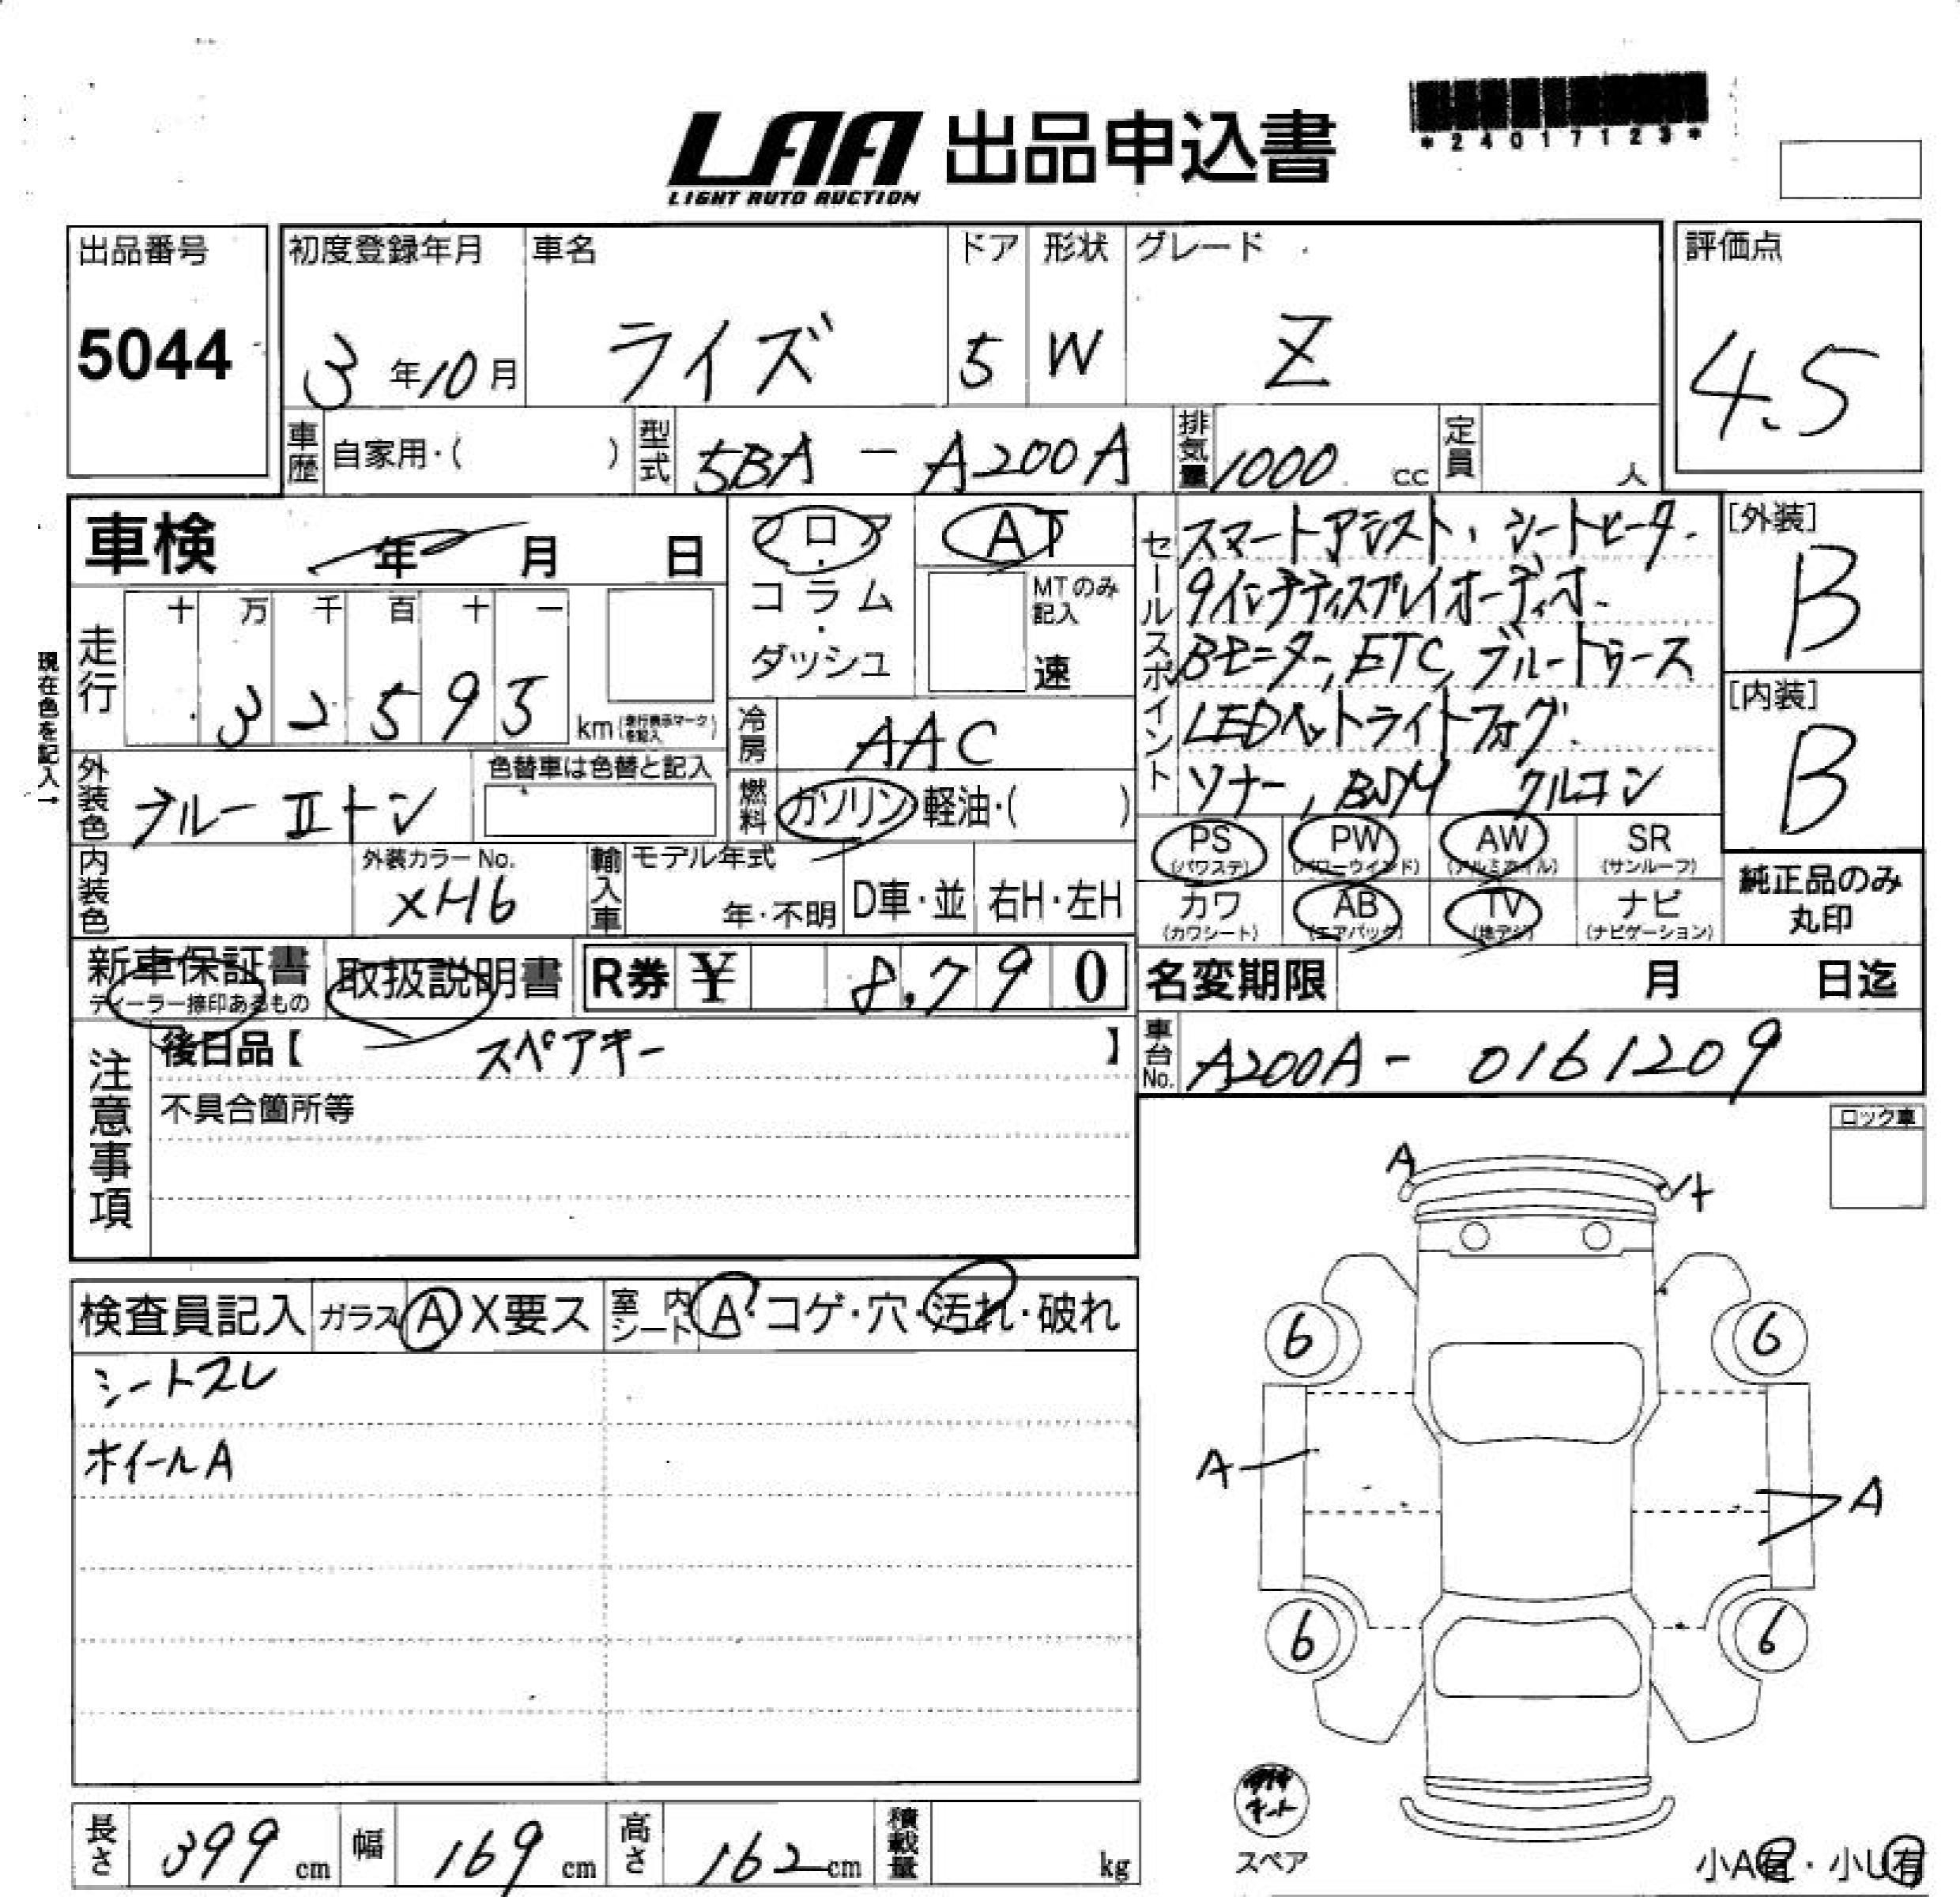 LAA 出品申込書
LIGHT AUTO AUCTION
*24017123*
出品番号
5044
初度登録年月 車名 ドア 形状 グレード
3年10月 ライズ 5 W Z
評価点
4.5
車歴 自家用・( ) 型式 5BA - A200A 排気量 1000 cc 定員 人
車検 年 月 日
フロア・コラム・ダッシュ
AT
MTのみ記入
速
現在色を記入→
走行 十 万 千 百 十 一
32593 km (走行表示マークを記入)
冷房 AAC
外装色 ブルーIIトン
色替車は色替と記入
燃料 ガソリン 軽油・( )
内装色
外装カラーNo.
XH6
輸入車 モデル年式
年・不明 D車・並 右H・左H
セールスポイント
スマートアシスト、シートヒーター
9インチディスプレイオーディオ
Bモニター, ETC, ブルートゥース
LEDヘットライトフォグ
ソナー, BSM クルコン
[外装]
B
[内装]
B
PS (パワステ) PW (パワーウインド) AW (アルミホイル) SR (サンルーフ)
カワ (カワシート) AB (エアバック) TV (地デジ) ナビ (ナビゲーション)
純正品のみ
丸印
新車保証書
ディーラー捺印あるもの
取扱説明書
R券 ¥ 8,790
名変期限 月 日迄
注意事項
後日品【 スペアキー 】
不具合箇所等
車台No. A200A - 0161209
ロック車
検査員記入 ガラス A X要ス 室内シート A・コゲ・穴・汚れ・破れ
シートスレ
ホイールA
A
6 6
A A
6 6
スペア
長さ 399 cm 幅 169 cm 高さ 162 cm 積載量 kg
小A有・小U有